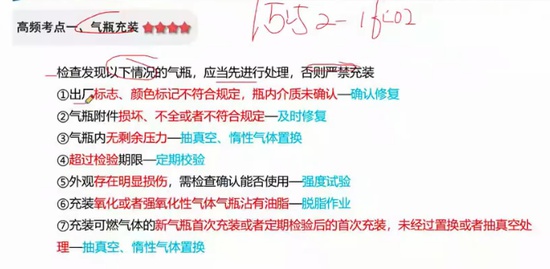 高频考点一、气瓶充装 ★★★★
检查发现以下情况的气瓶，应当先进行处理，否则严禁充装
①出厂标志、颜色标记不符合规定，瓶内介质未确认—确认修复
②气瓶附件损坏、不全或者不符合规定—及时修复
③气瓶内无剩余压力—抽真空、惰性气体置换
④超过检验期限—定期校验
⑤外观存在明显损伤，需检查确认能否使用—强度试验
⑥充装氧化或者强氧化性气体气瓶沾有油脂—脱脂作业
⑦充装可燃气体的新气瓶首次充装或者定期检验后的首次充装，未经过置换或者抽真空处
理—抽真空、惰性气体置换